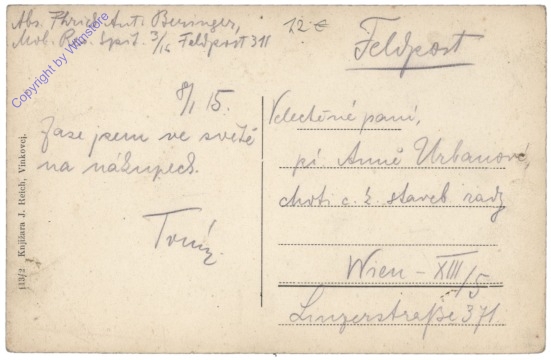 Abs. Fhrich Ant. Beringer,
Mob. Res. Spit. 3/15 Feldpost 311
12 €
Feldpost
Copyright by Winstore
8/I 15.
Zase jsem ve světě
na nákupech.
Velectěné paní,
pí Anně Urbanové,
choti c. k. staveb rady
Wien – XIII/5
Linzerstraße 371
113/2 Knjižara J. Reich, Vinkovci.